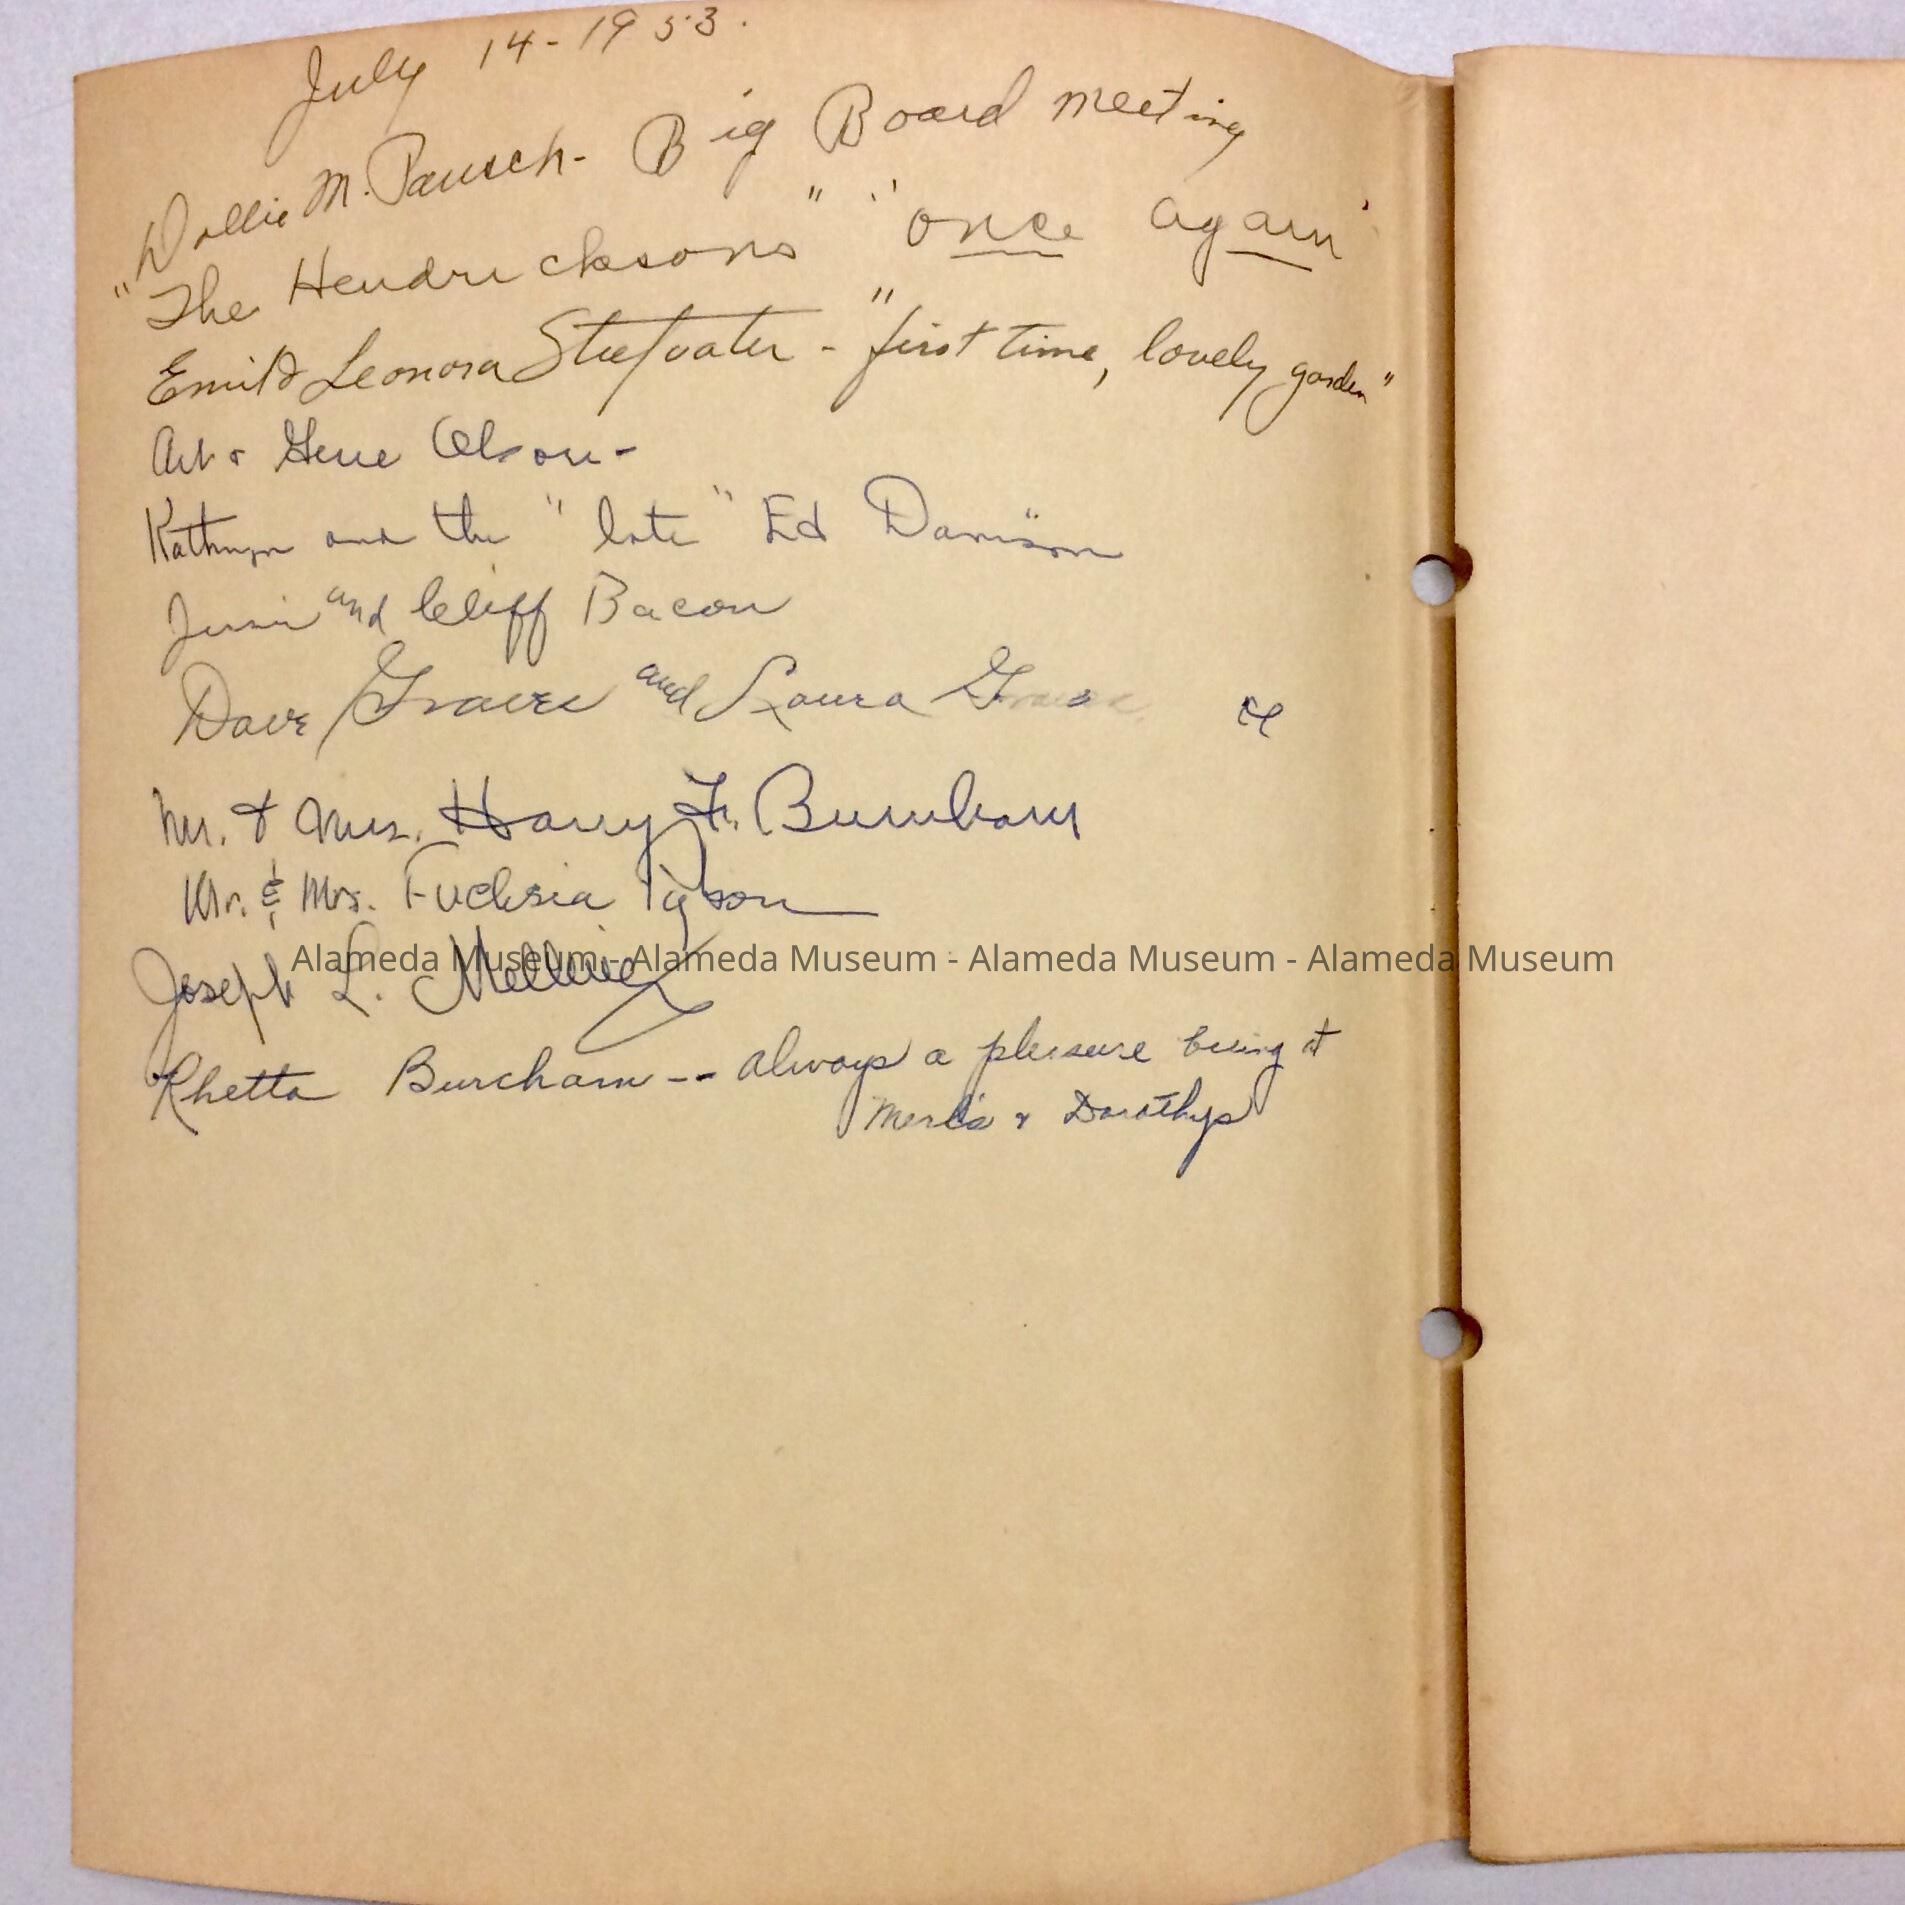 July 14-1953.
Dollie M. Pausch - Big Board meeting
"The Hendricksons" "once again"
Emil & Leonora - "first time, lovely garden"
Art & Gene Olson -
Kathryn and the "late" Ed Davison
and Cliff Bacon
Dave Graves and Laura Graves
Mr. & Mrs. Harry F. Burnham
Mr. & Mrs. Fuchsia Tyson
Alameda Museum - Alameda Museum - Alameda Museum - Alameda Museum
Joseph L.
Rhetta Burcham -- always a pleasure being at
Merle's & Dorothys